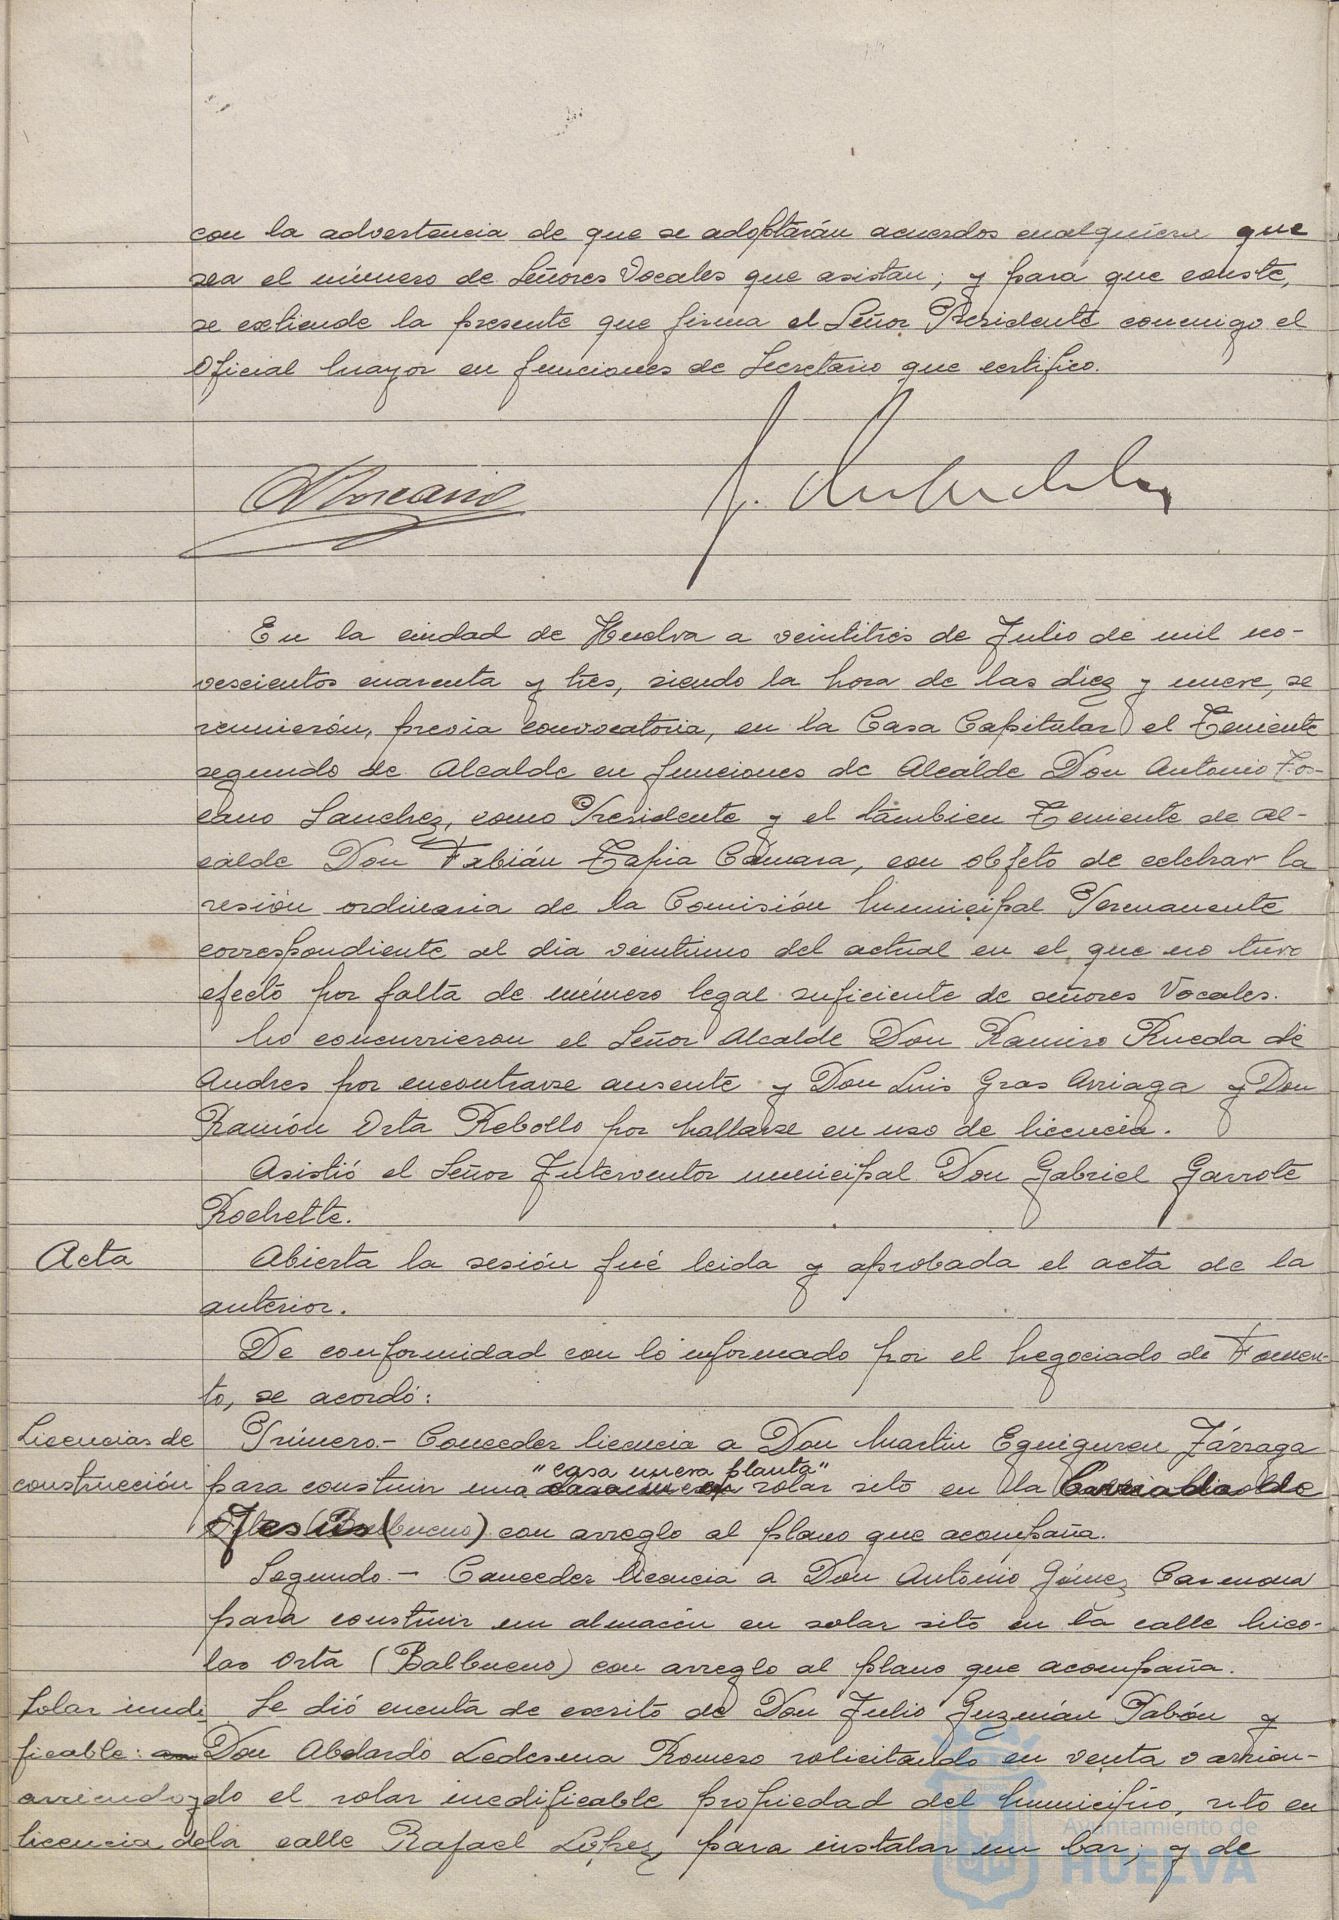 con la advertencia de que se adoptarán acuerdos cualquiera que
sea el número de Señores Vocales que asistan; y para que conste,
se extiende la presente que firma el Señor Presidente conmigo el
Oficial Mayor en funciones de Secretario que certifico.
En la ciudad de Huelva a veintitrés de Julio de mil no-
vescientos cuarenta y tres, siendo la hora de las diez y nueve, se
reunierón, previa convocatoria, en la Casa Capitular el Teniente
segundo de Alcalde en funciones de Alcalde Don Antonio Tos-
cano Sanchez, como Presidente y el támbien Teniente de Al-
calde Don Fabián Tapia Cámara, con objeto de celebrar la
sesión ordinaria de la Comisión Municipal Permanente
correspondiente al dia veintiuno del actual en el que no tuvo
efecto por falta de número legal suficiente de señores Vocales.
No concurrieron el Señor Alcalde Don Ramiro Rueda de
Andres por encontrarse ausente y Don Luis Gras Arriaga y Don
Ramón Orta Rebollo por hallarse en uso de licencia.
Asistió el Señor Interventor municipal Don Gabriel Garrote
Rochette.
Acta Abierta la sesión fué leida y aprobada el acta de la
anterior.
De conformidad con lo informado por el Negociado de Fomen-
to, se acordó:
Licencias de Primero.- Conceder licencia a Don Martin Eguiguren Járraga
"casa nueva planta"
construcción para construir una solar sito en la
Jesús (Balbueno) con arreglo al plano que acompaña.
Segundo.- Conceder licencia a Don Antonio Gómez Carmona
para construir un almacén en solar sito en la calle Nico-
las Orta (Balbueno) con arreglo al plano que acompaña.
Solar inedi Se dió cuenta de escrito de Don Julio Guzmán Pabón y
ficable: Don Abelardo Ledesma Romero solicitando en venta o arrien-
arriendo y do el solar inedificable propiedad del Municipio, sito en
licencia de la calle Rafael López, para instalar un bar; y de
Ayuntamiento de
HUELVA